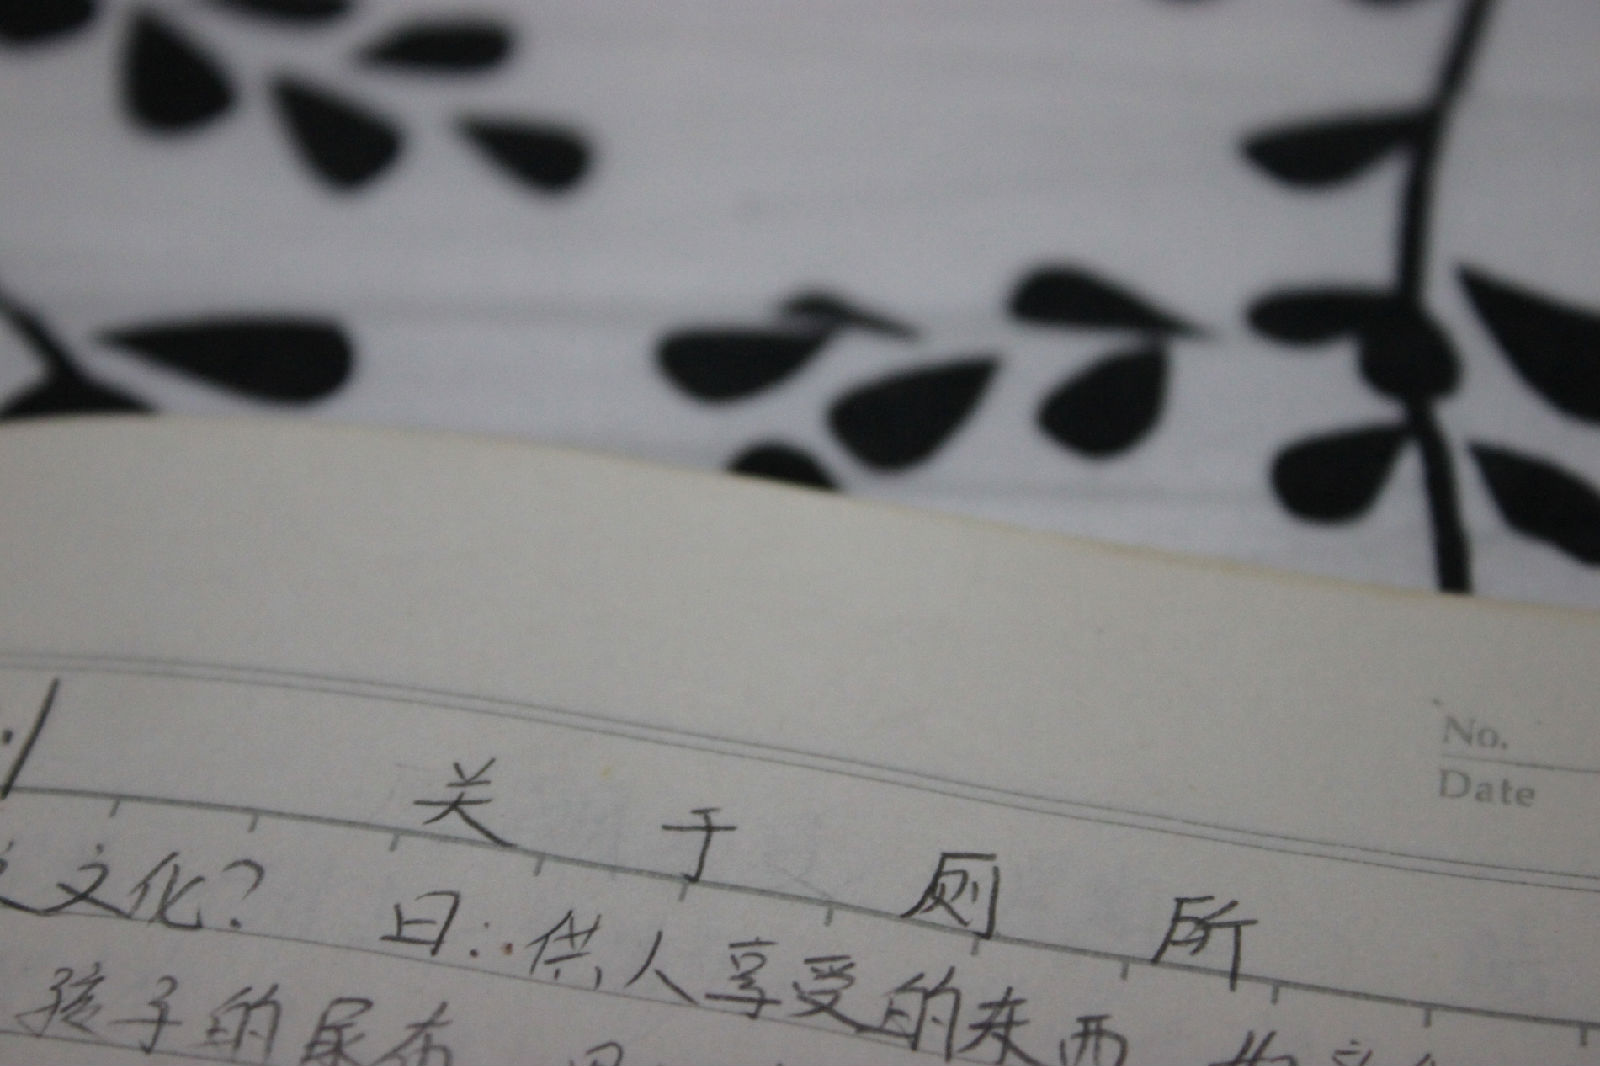 No.
Date
关于厕所
文化? 曰:供人享受的东西
孩子的尿布